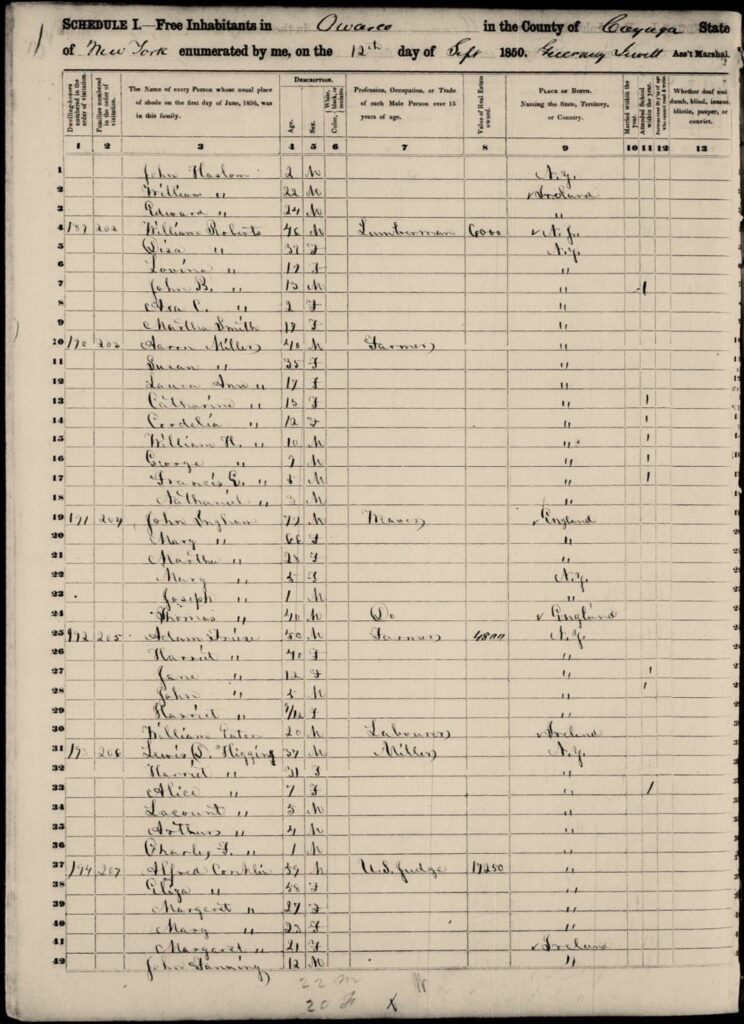 SCHEDULE I.—Free Inhabitants in Owasco in the County of Cayuga State
of New York enumerated by me, on the 12th day of Sept 1850. Ass't Marshal.
Dwelling-houses numbered in the order of visitation. Families numbered in the order of visitation. The Name of every Person whose usual place of abode on the first day of June, 1850, was in this family. DESCRIPTION. Age. Sex. White, black, or mulatto. Color, Profession, Occupation, or Trade of each Male Person over 15 years of age. Value of Real Estate owned. PLACE OF BIRTH. Naming the State, Territory, or Country. Married within the year. Attended School within the year. Whether deaf and dumb, blind, insane, idiotic, pauper, or convict.
1 2 3 4 5 6 7 8 9 10 11 12 13
1 John 2 M N.Y.
2 William " 22 M Ireland
3 Edward " 24 M "
4 189 202 William Roberts 48 M Lumberman 6000 N.J.
5 " 37 F N.Y.
6 " 19 F "
7 John B. " 13 M " 1
8 Ara C. " 2 F "
9 Martha Smith 19 F "
10 190 203 Aaron Miller 40 M Farmer "
11 Susan " 35 F "
12 Laura Ann " 17 F "
13 Catharine " 15 F " 1
14 Cordelia " 12 F " 1
15 William H. " 10 M " 1
16 George " 9 M " 1
17 Francis E. " M " 1
18 Nathaniel " 3 M "
19 191 204 John Ingham 77 M England
20 Mary " 68 F "
21 Martha " 28 F "
22 Mary " 5 F N.Y.
23 Joseph " 1 M "
24 Thomas " 40 M Do England
25 192 205 Adam 50 M Farmer 4800 N.Y.
26 Harriet " 40 F "
27 Jane " 12 F " 1
28 John " 5 M " 1
29 Harriet " /12 F "
30 William Eaton 20 M Labourer Ireland
31 193 206 Lewis D. Higgins 37 M Miller N.Y.
32 Harriet " 31 F "
33 Alice " 7 F " 1
34 Lacount " 5 M "
35 Arthur " 4 M "
36 Charles F. " 1 M "
37 194 207 Alfred Conklin 59 M U.S. Judge 17250 "
38 Eliza " 58 F "
39 Margaret " 27 F "
40 Mary " 23 F "
41 Margaret " 21 F Ireland
42 John Fanning 12 M "
22 M
20 F X